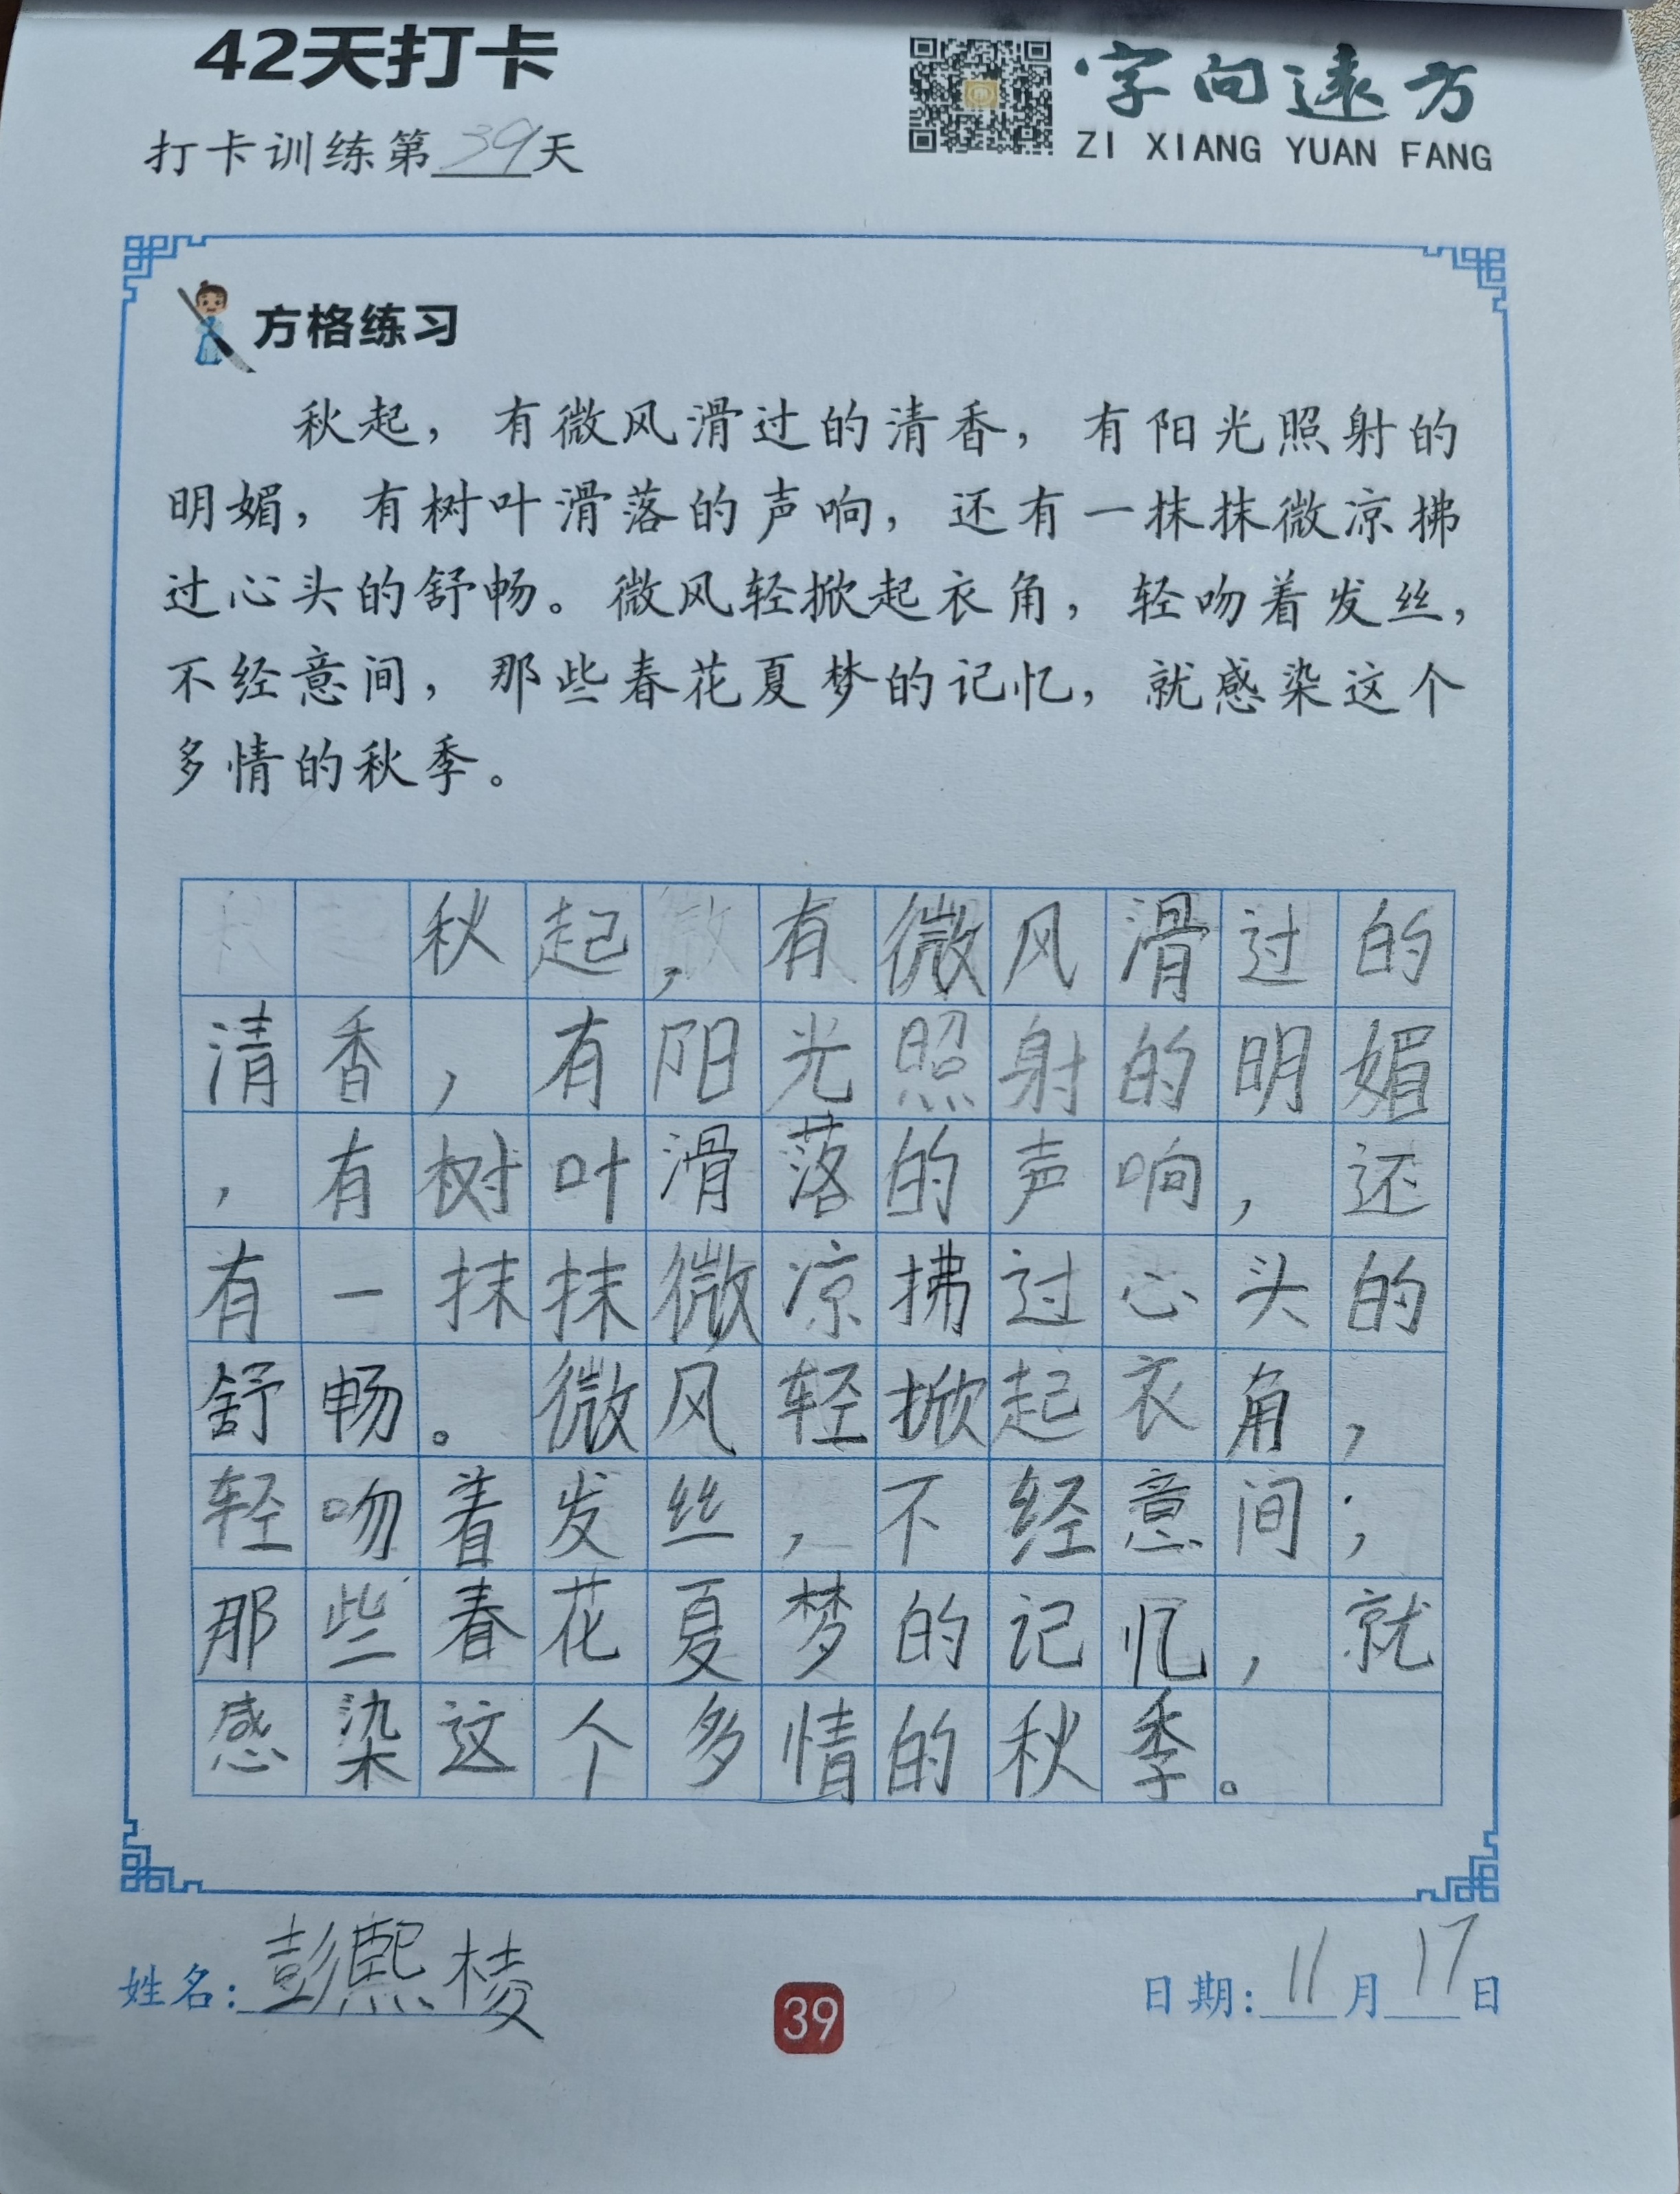 42天打卡
字向远方
打卡训练第39天
ZI XIANG YUAN FANG
方格练习
秋起，有微风滑过的清香，有阳光照射的
明媚，有树叶滑落的声响，还有一抹抹微凉拂
过心头的舒畅。微风轻掀起衣角，轻吻着发丝，
不经意间，那些春花夏梦的记忆，就感染这个
多情的秋季。
秋起，有微风滑过的
清香，有阳光照射的明媚
，有树叶滑落的声响，还
有一抹抹微凉拂过心头的
舒畅。微风轻掀起衣角，
轻吻着发丝，不经意间；
那些春花夏梦的记忆，就
感染这个多情的秋季。
姓名：彭熙棱
39
日期：11月17日